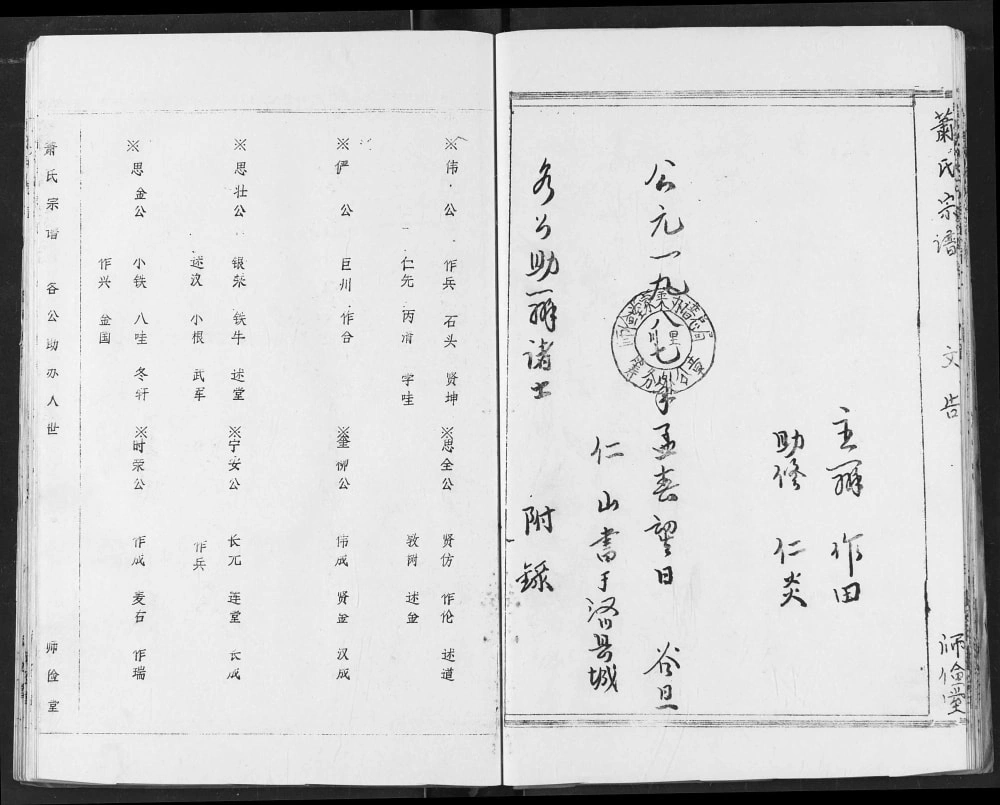 萧氏宗谱 文告 师俭堂
主办 作田
助修 仁炎
公元一九八七年孟春望日 谷旦
仁山书于洛县城
各公助办诸士 附录
※伟公 作兵 石头 贤坤
仁先 丙 字哇
※俨公 巨川 作合
※思壮公 银荣 铁牛 述堂
述汉 小根 武军
※思金公 小铁 八哇 冬轩
作兴 金国
※思全公 贤仿 作伦 述道
敦树 述金
※奎柳公 伟成 贤金 汉成
※宁安公 长元 连堂 长成
作兵
※时荣公 作成 麦石 作瑞
萧氏宗谱 各公助办人世 师俭堂